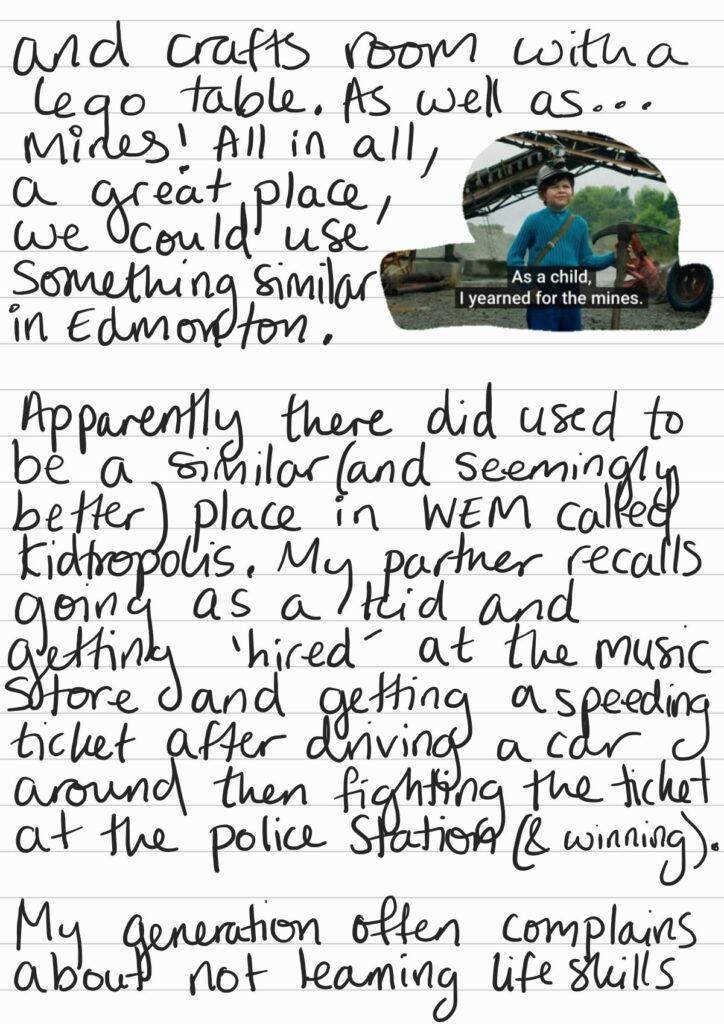 and crafts room with a
lego table. As well as...
mines! All in all,
a great place,
we could use
something similar
in Edmonton.
As a child,
I yearned for the mines.
Apparently there did used to
be a similar (and seemingly
better) place in WEM called
Kidtropolis. My partner recalls
going as a kid and
getting 'hired' at the music
store and getting a speeding
ticket after driving a car
around then fighting the ticket
at the police station (& winning).
My generation often complains
about not learning life skills